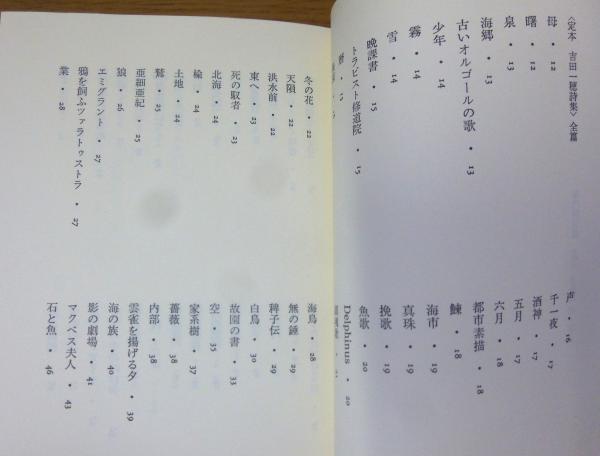 〈定本 吉田一穂詩集〉全篇
母・12
曙・12
泉・13
海郷・13
古いオルゴールの歌・13
少年・14
霧・14
雪・14
晩課書・15
トラピスト修道院・15
声・16
千一夜・17
酒神・17
五月・17
六月・18
都市素描・18
鰊・18
海市・19
真珠・19
挽歌・19
魚歌・20
Delphinus・20
冬の花・22
天隕・22
洪水前・22
東へ・23
死の馭者・23
北海・24
楡・24
土地・24
鷲・25
亜細亜紀・25
狼・26
エミグラント・27
鴉を飼ふツァラトゥストラ・27
業・28
海鳥・28
無の錘・29
稗子伝・29
白鳥・30
故園の書・33
空・35
家系樹・37
薔薇・38
内部・38
雲雀を揚げる夕・39
海の族・40
影の劇場・41
マクベス夫人・43
石と魚・46